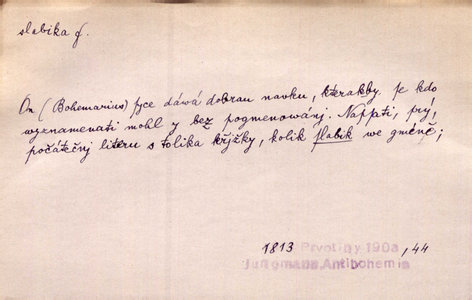 slabika f.
On (Bohemarius) syce dáwá dobrau nauku, kterakby se kdo
wyznamenati mohl y bez pogmenowánj. Nappati, prý,
počátečnj literu s tolika křjžky, kolik slabik we gméně;
1813 Prvotiny 190a , 44
Jungmann, Antibohemia